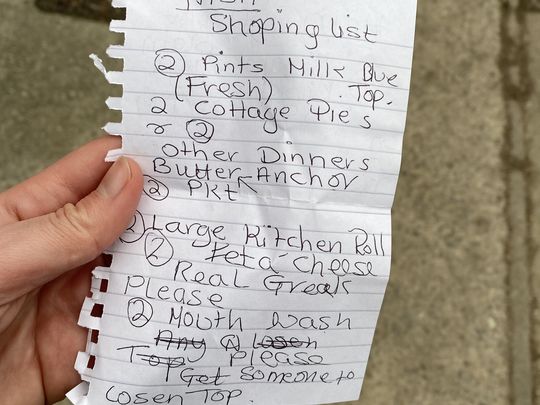 Shoping list
② Pints Milk Blue
(Fresh) Top.
2 Cottage Pie s
r ②
Other Dinners
Butter ← Anchor
② Pkt
② Large Kitchen Roll
② Feta Cheese
Real Greak
Please
② Mouth Wash
Any @ Losen
Top Please
Get Someone to
Losen Top.